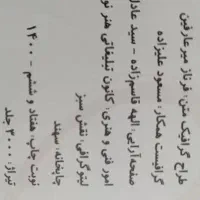 طراح گرافیک متن: فرناز میرعارفین
گرافیست همکار: مسعود علیزاده
صفحه‌آرایی: الهه قاسم‌زاده – سید عادل
امور فنی و هنری: کانون تبلیغاتی هنر نو
لیتوگرافی: نقش سبز
چاپخانه: سهند
نوبت چاپ: هفتاد و ششم – ۱۴۰۰
تیراژ: ۳۰۰۰ جلد